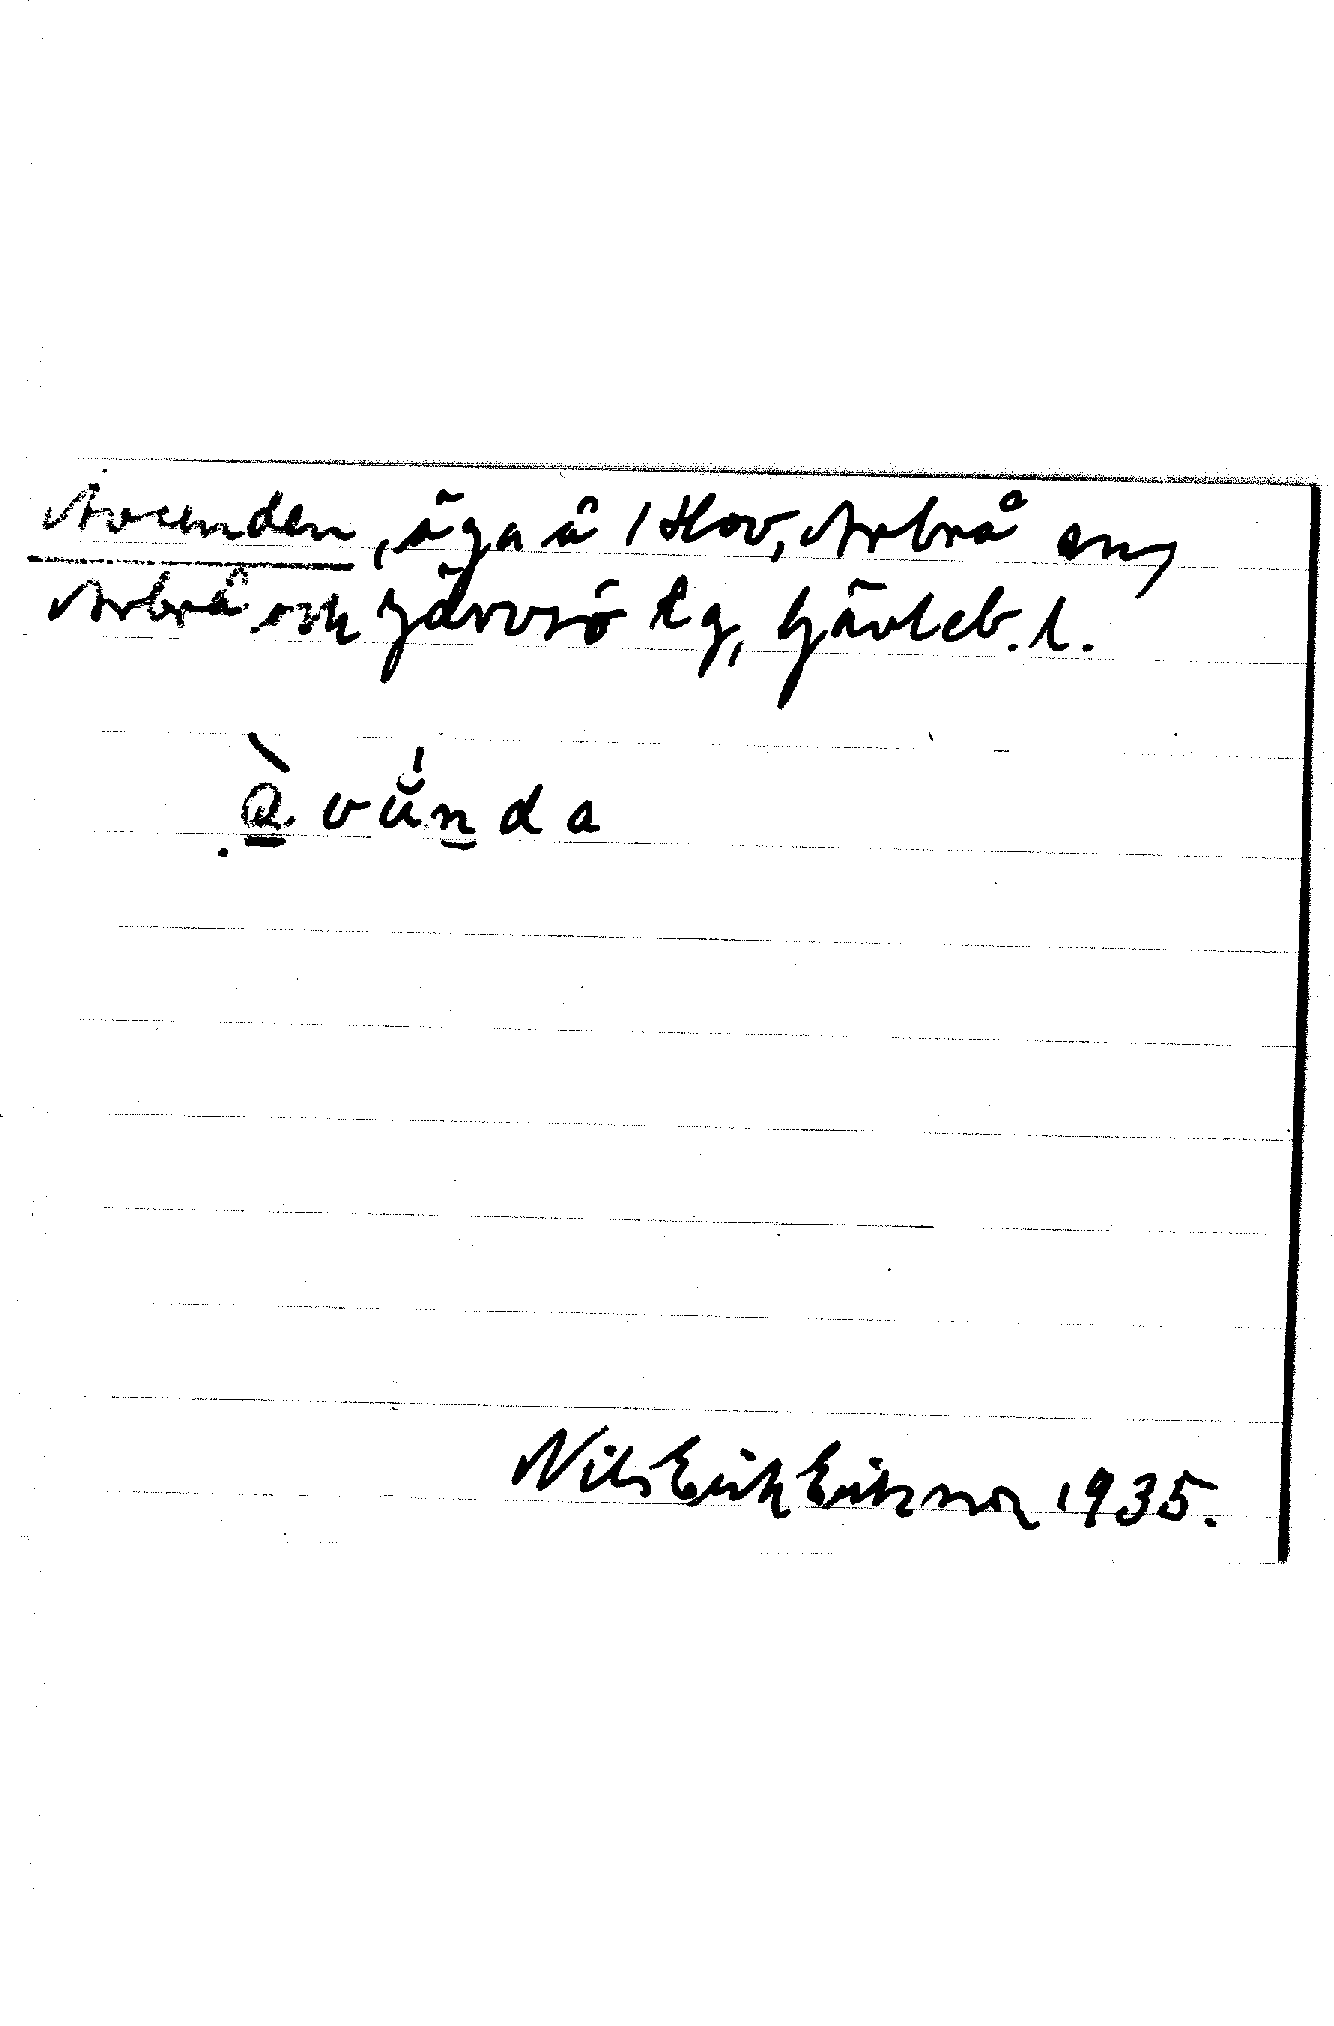 Avunden, äga å 1 Hov, Arbrå sn,
Arbrå och Järvsö tg, Gävleb. l.
à vŭ́n d a
Nils Erik Eriksson 1935.